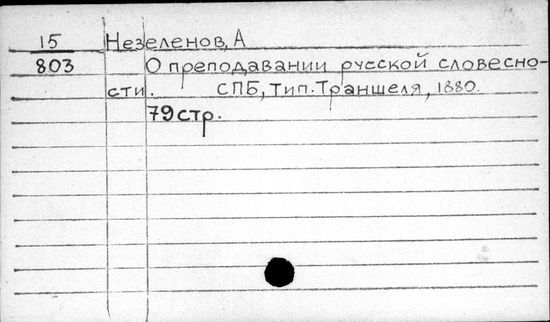 15 Незеленов, А
803 О преподавании русской словесно-
сти. СПБ, Тип. Траншеля, 1880.
79 стр.